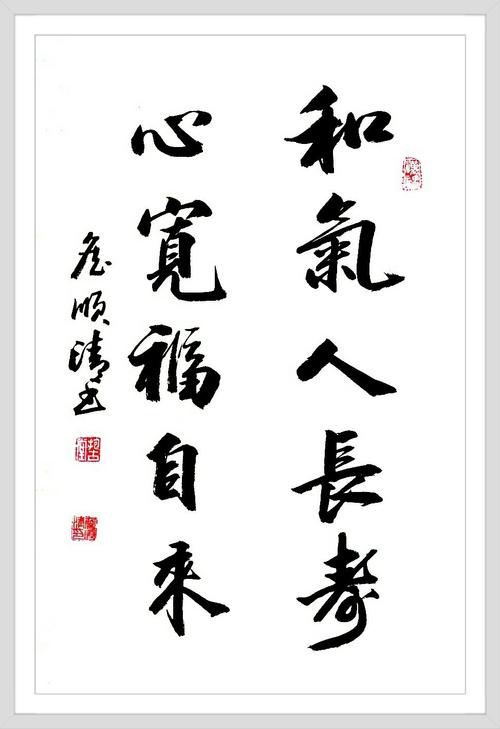 和氣人長壽
心寬福自來
詹順清书